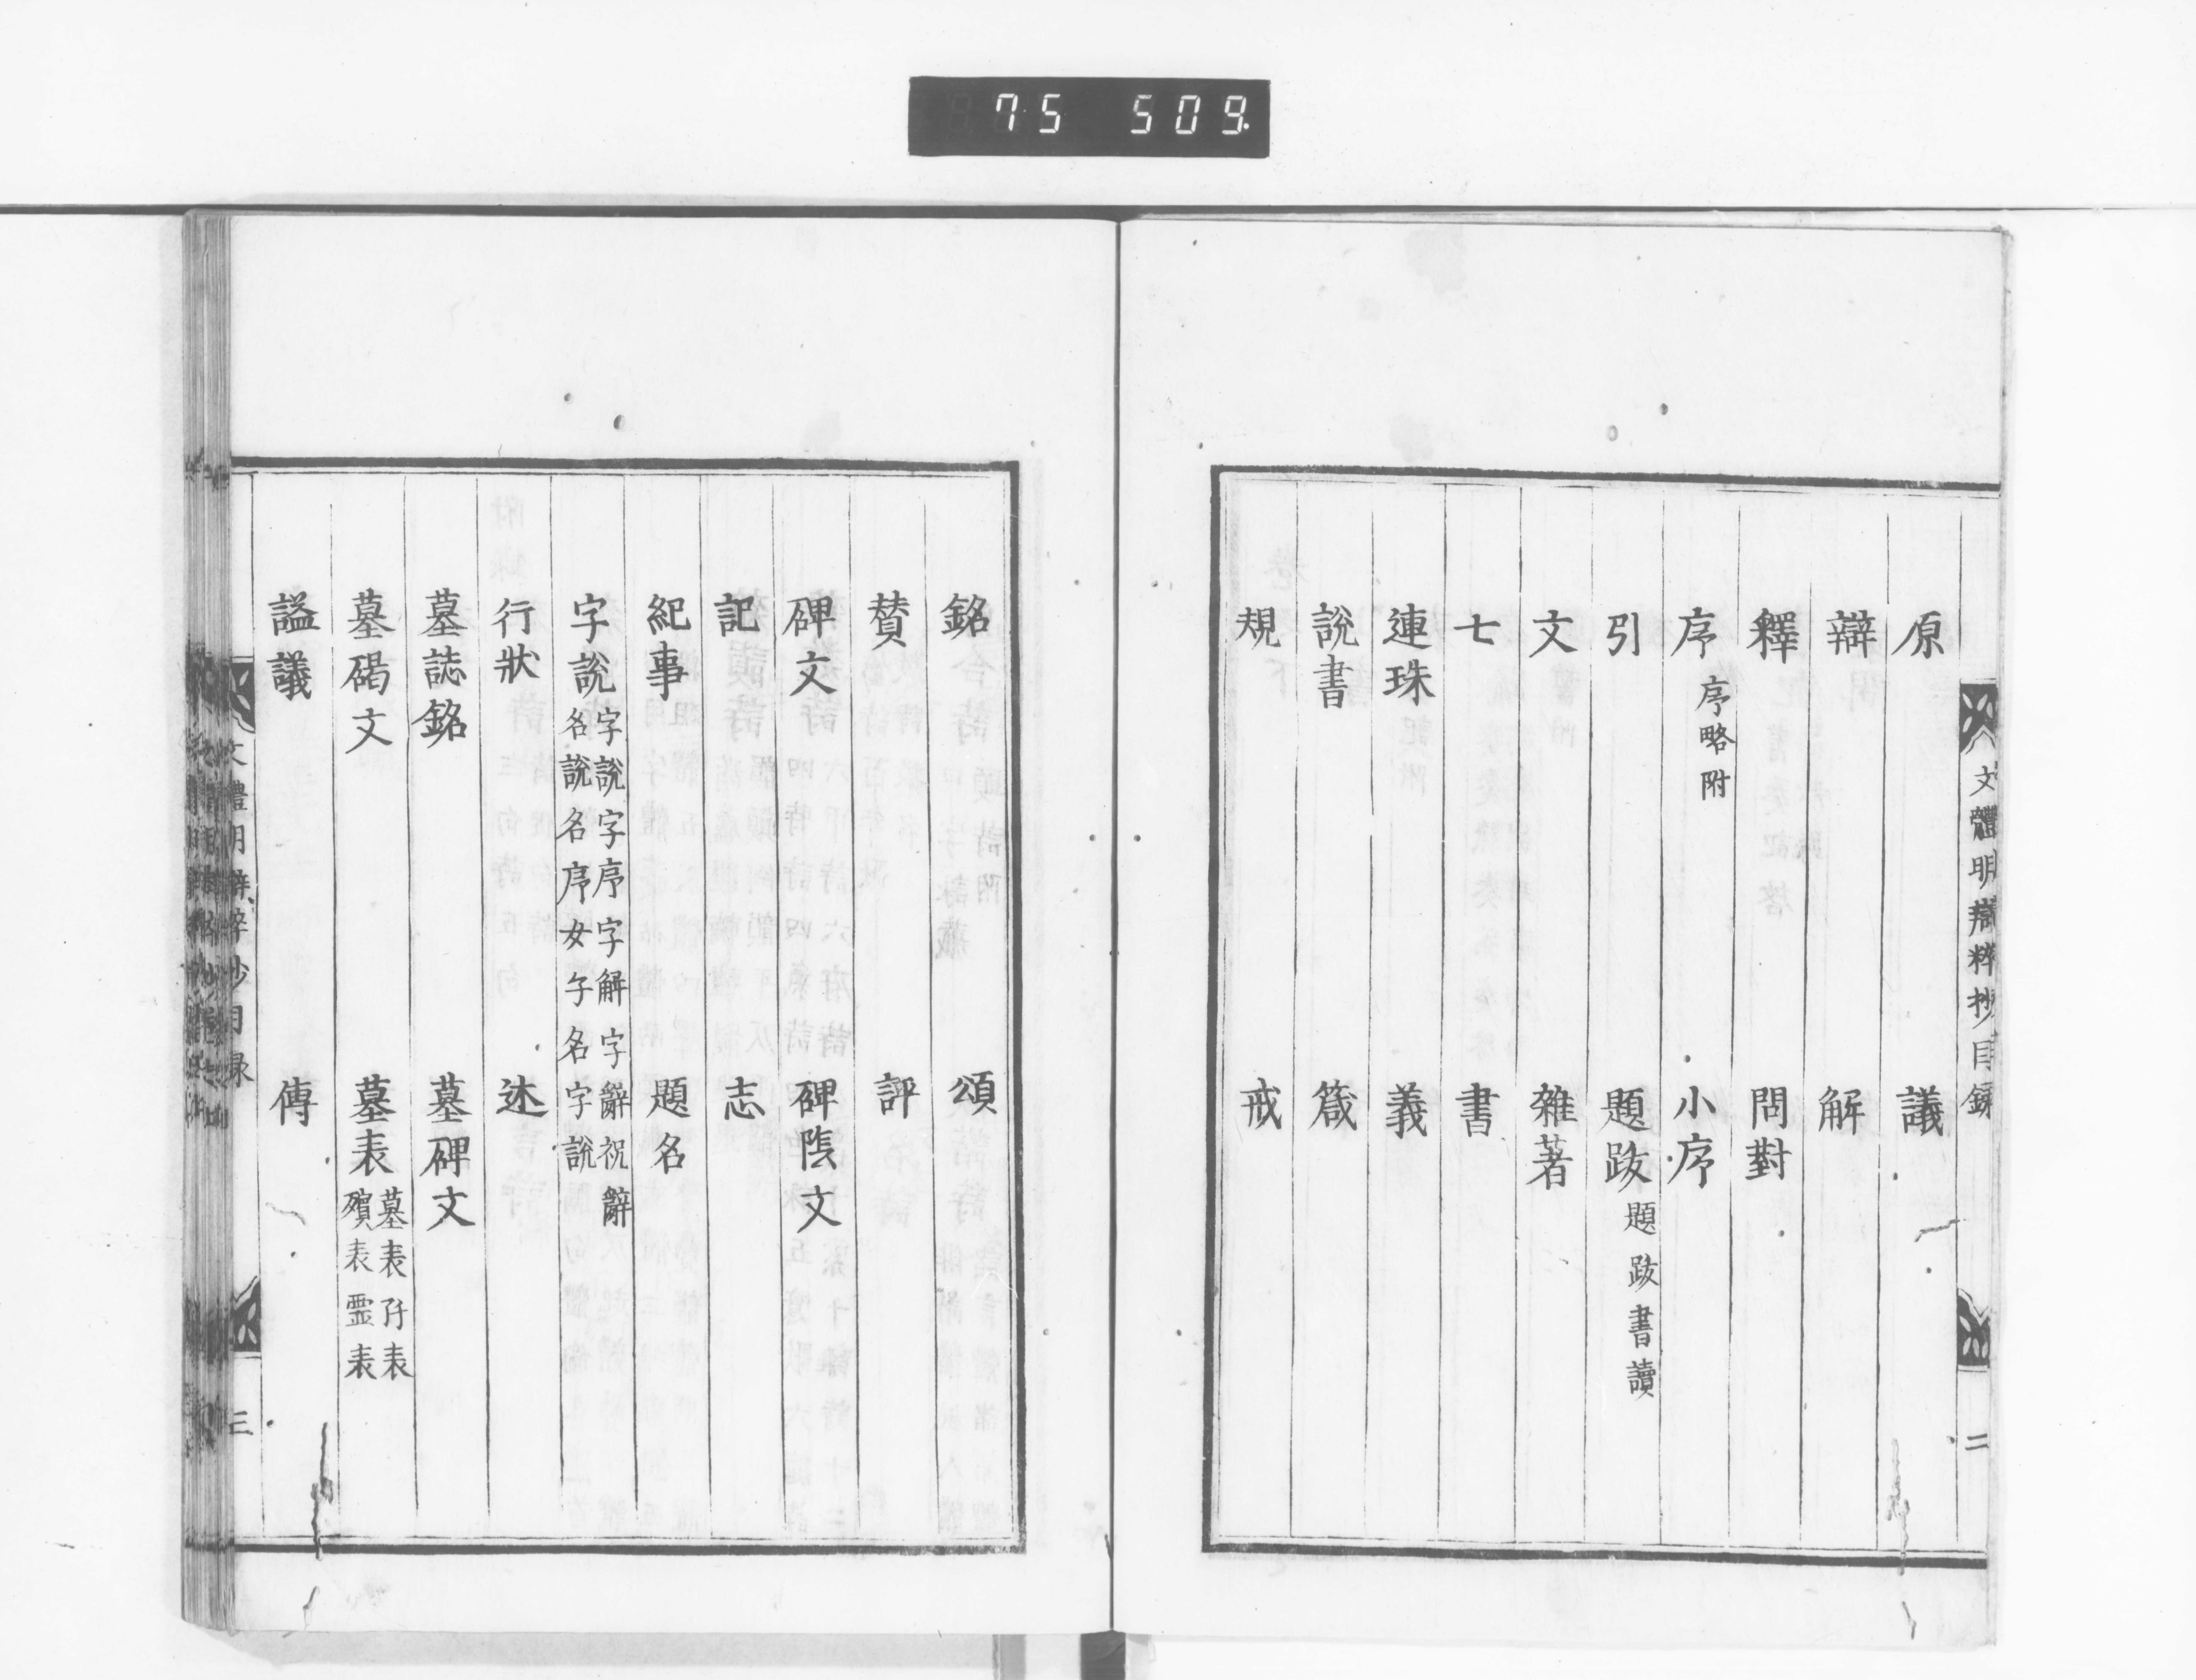 75 509.
文體明辯粹抄目録 二
原 議
辯 解
釋 問對
序 序略附 小序
引 題跋 題跋書讀
文 雜著
七 書
連珠 義
說書 箴
規 戒
銘 頌
賛 評
碑文 碑陰文
記 志
紀事 題名
字說 字說字序字解字辭祝辭
名說名序女子名字說
行狀 述
墓誌銘 墓碑文
墓碣文 墓表 墓表阡表
殯表霊表
謚議 傳
文體明辯粹抄目録 三